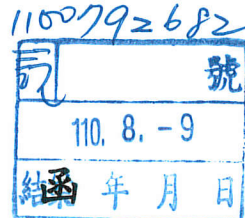 1100792682
號
110. 8. -9
結 函 年 月 日